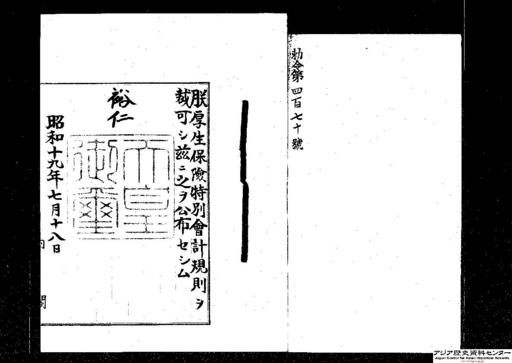 勅令第四百七十號
朕厚生保險特別會計規則ヲ
裁可シ茲ニ之ヲ公布セシム
裕仁
天皇
御璽
昭和十九年七月十八日
内閣
アジア歴史資料センター
Japan Center for Asian Historical Records